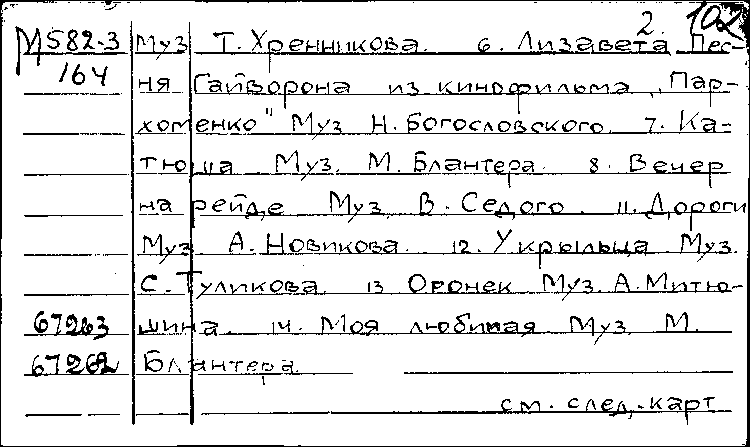 2. 102
М582-3 Муз Т. Хренникова. 6. Лизавета Пес-
164 ня Гайворона из кинофильма „Пар-
хоменко" Муз Н. Богословского. 7. Ка-
тюша Муз. М. Блантера. 8. Вечер
на рейде Муз. В. Седого. 11. Дороги
Муз. А. Новикова. 12. У крыльца Муз.
С. Туликова. 13 Огонек Муз. А. Митю-
67263 шина. 14. Моя любимая Муз М.
67262 Блантера
см. след. карт